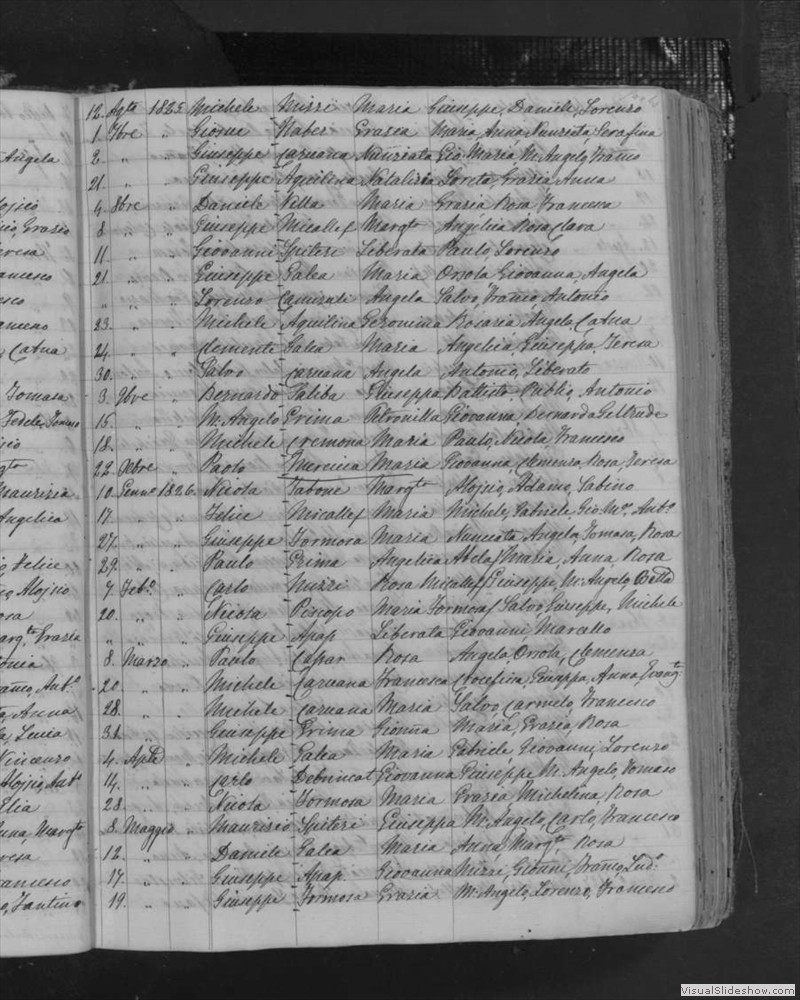 Angela
Alojsio
Grazio
Teresa
Francesco
Catna
Tomaso
Fedele,
Maurizia
Angelica
Felice
Alojsio
Rosa
Margta Grazia
Anto.
Anna
Lucia
Vincenzo
Alojsio, Anto
Elia
Anna, Margta
Teresa
Francesco
12. Agto 1825 Michele Mizzi Maria Giuseppe, Daniele, Lorenzo
1. 7bre " Giosue Haber Grazia Maria, Anna, Nunziata, Serafina
2. " " Giuseppe Caruana Nunziata Gio Maria, M. Angelo, Franco
21. " " Giuseppe Aquilina Natalizia Loreta, Grazia, Anna
4. 8bre " Daniele Vella Maria Grazia Rosa Francesca
8 " " Giuseppe Micallef Margta Angelica Rosa Clara
11 " " Giovanni Spiteri Liberata Paulo, Lorenzo
21 " " Giuseppe Galea Maria Orsola Giovanna, Angela
" " " Lorenzo Camenzuli Angela Salvo, Franco Antonio
23. " " Michele Aquilina Geronima Rosaria, Angela, Catna
24. " " Clemente Galea Maria Angelica, Giuseppa, Teresa
30. " " Salvo Caruana Angela Antonio, Liberato
3. 9bre " Bernardo Saliba Giuseppa Battista, Publio, Antonio
15. " " M. Angelo Prima Petronilla Giovanna, Bernarda Geltrude
18. " " Michele Cremona Maria Paulo, Nicola, Francesco
22. Xbre " Paolo Mercieca Maria Giovanna, Clemenza, Rosa, Teresa
10. Genno 1826. Nicola Tabone Margta Alojsio, Adamo, Sabino
17. " " Felice Micallef Maria Michele, Gabriele, Gio. Ma. Anto.
27. " " Giuseppe Formosa Maria Nunziata Angela, Tomasa, Rosa
29. " " Paulo Prima Angelica Abela Maria, Anna, Rosa
7. Febo. " Carlo Mizzi Rosa Micallef Giuseppe, M. Angelo, Batta
20. " " Nicola Piscopo Maria Formosa Salvo Giuseppe, Michele
" " " Giuseppe Apap Liberata Giovanni, Marcello
8. Marzo " Paulo Caxar Rosa Angela, Orsola, Clemenza
20. " " Michele Caruana Francesca Giuseppa, Anna,
28. " " Michele Caruana Maria Salvo, Carmelo, Francesco
31. " " Giuseppe Prima Gionna Maria, Grazia, Rosa
4. Aple " Michele Galea Maria Gabriele Giovanni, Lorenzo
14. " " Carlo Debrincat Giovanna Giuseppe, M. Angelo, Tomaso
28. " " Nicola Formosa Maria Grazia Michelina, Rosa
8. Maggio " Maurizio Spiteri Giuseppa M. Angelo, Carlo, Francesco
12. " " Daniele Galea Maria Anna, Margta. Rosa
17. " " Giuseppe Apap Giovanna Mizzi, Gionni, Franco, Ludo.
19. " " Giuseppe Formosa Grazia M. Angelo, Lorenzo, Francesco
VisualSlideshow.com